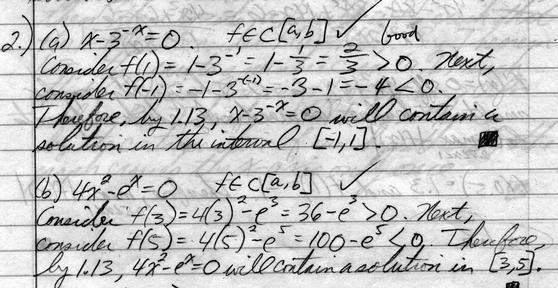 2.) (a) x-3^-x=0. f∈C[a,b] ✓ good
Consider f(1)=1-3^-1=1-1/3=2/3>0. Next,
consider f(-1)=-1-3^-(-1)=-3-1=-4<0.
Therefore, by 1.13, x-3^-x=0 will contain a
solution in the interval [-1,1]. ■
(b) 4x²-e^x=0 f∈C[a,b] ✓
Consider f(3)=4(3)²-e³=36-e³>0. Next,
consider f(5)=4(5)²-e⁵=100-e⁵<0. Therefore,
by 1.13, 4x²-e^x=0 will contain a solution in [3,5].